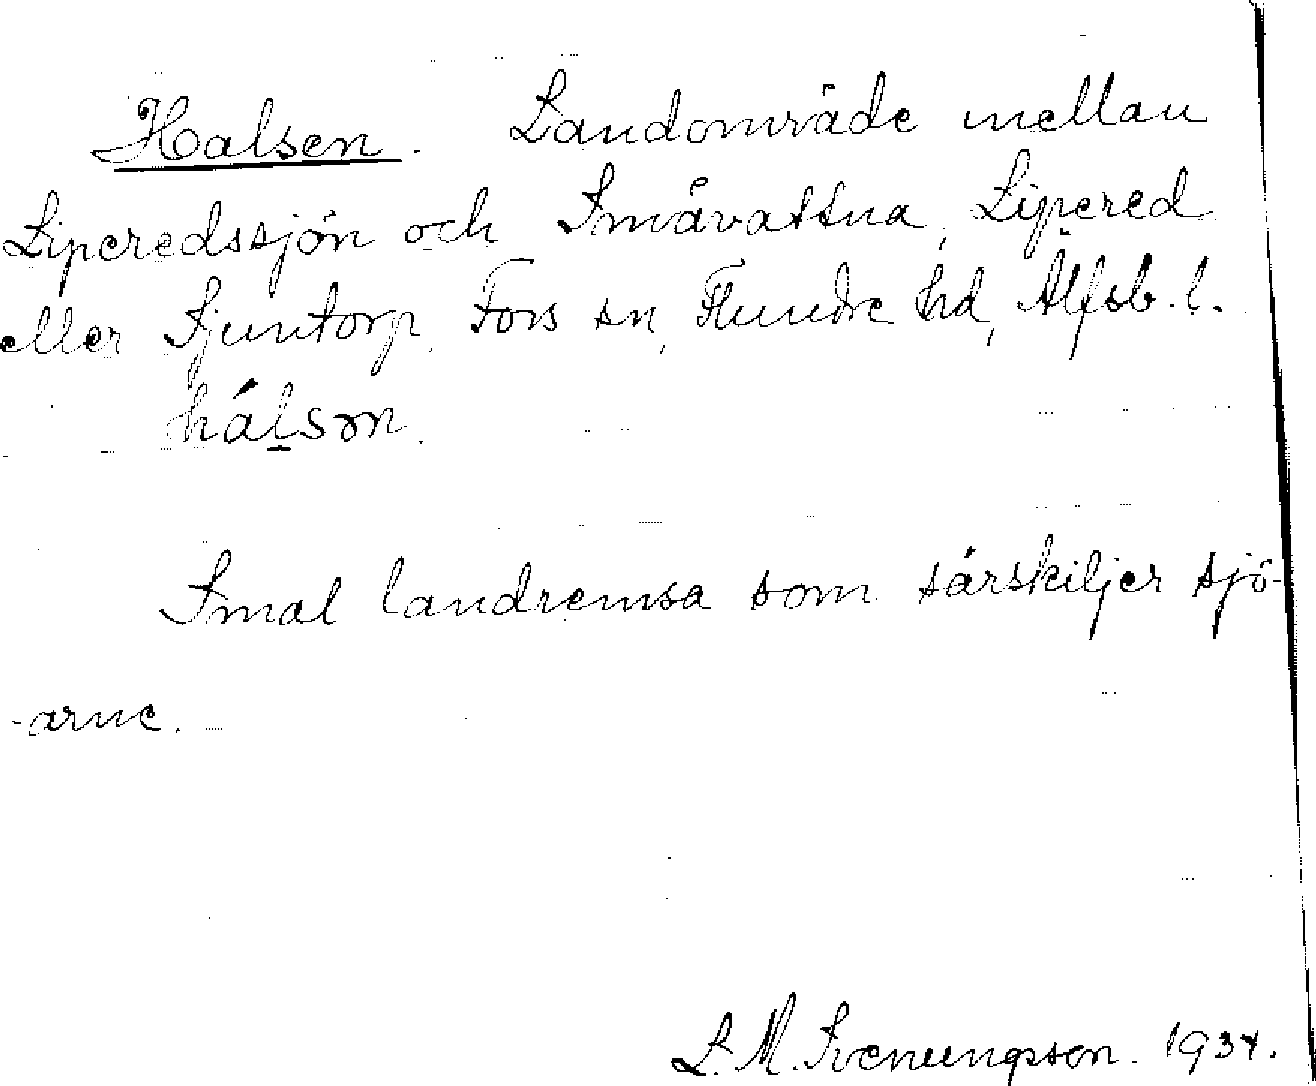 Halsen. Landområde mellan
Liperedssjön och Småvattna, Lipered
eller Sjuntorp, Fors sn, Flundre hd, Älfsb. l.
hálsọn.
Smal landremsa som särskiljer sjö-
-arne.
L. M. Svenungsson. 1934.